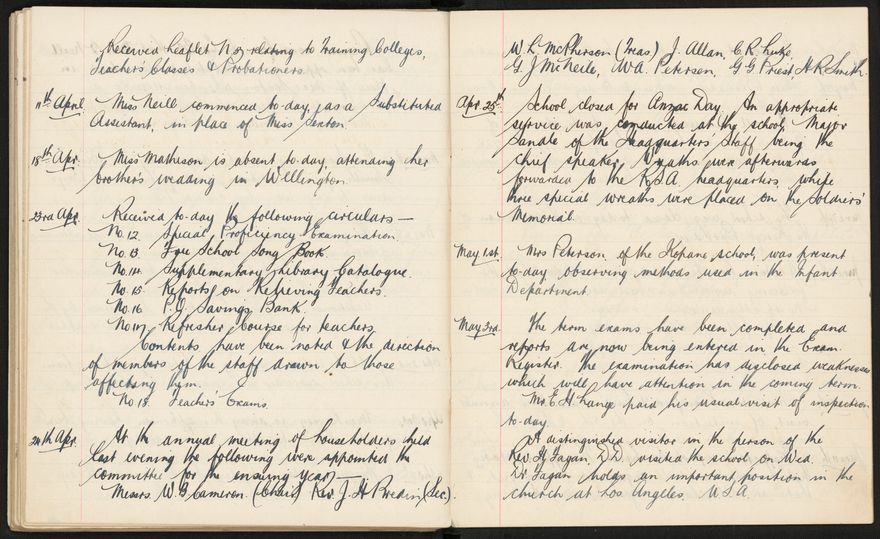 Received Leaflet No 3 relating to Training Colleges,
Teacher's Classes & Probationers.
11th April Miss Neill commenced to-day as a Substituted
Assistant, in place of Miss Sexton.
18th Apr. Miss Matheson is absent to-day, attending her
brother's wedding in Wellington.
23rd Apr. Received to-day the following circulars —
No. 12. Special Proficiency Examination.
No. 13. School Song Book.
No. 14. Supplementary Library Catalogue.
No. 15. Reports on Relieving Teachers.
No. 16 P.O. Savings Bank.
No 17 Refresher Course for teachers.
Contents have been noted & the direction
of members of the staff drawn to those
affecting them.
No 18. Teachers' Exams.
24th Apr. At the annual meeting of householders held
last evening the following were appointed the
committee for the ensuing year —
Messrs. W. G Cameron (Chair) Rev. J. H Bredin (Sec).
W. L. McPherson (Treas) J. Allan, C. R. Luke
G. J McNeile, W. A. Peterson, G. G. Priest, A. R. Smith.
Apr. 25th School closed for Anzac Day. An appropriate
service was conducted at the school, Major
Sandle of the Headquarters Staff being the
chief speaker. Wreaths were afterwards
forwarded to the R.S.A. headquarters, while
three special wreaths were placed on the Soldiers'
Memorial.
May 1st. Mrs Peterson of the Kopane school, was present
to-day observing methods used in the Infant
Department.
May 3rd. The term exams have been completed and
reports are now being entered in the Exam.
Register. The examination has disclosed weaknesses
which will have attention in the coming term.
Mr. E. H. Lange paid his usual visit of inspection
to-day.
A distinguished visitor in the person of the
Rev. Fagan D.D. visited the school on Wed.
Dr. Fagan holds an important position in the
church at Los Angeles. U.S.A.